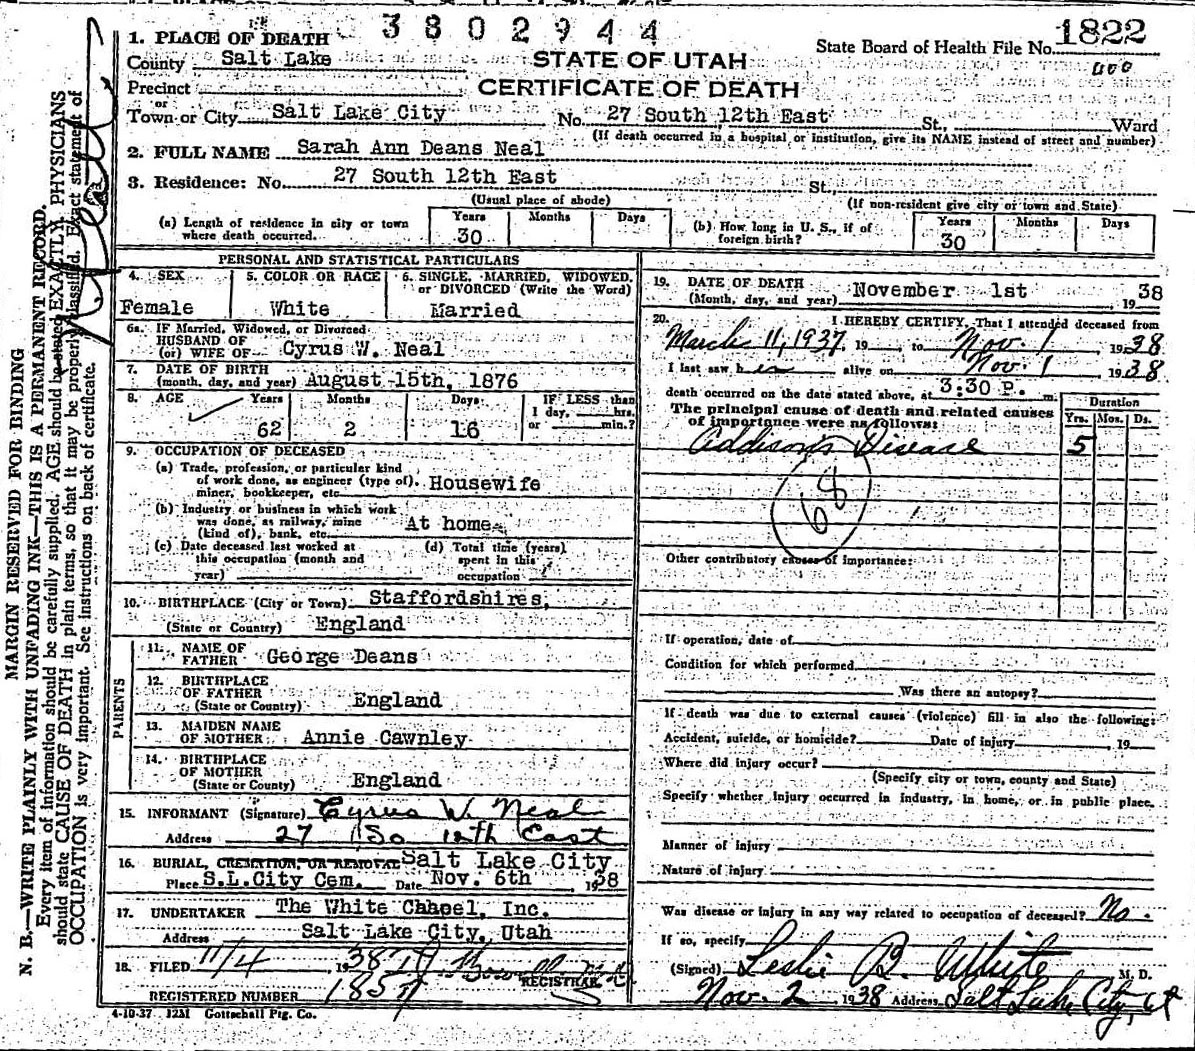 3802944
1. PLACE OF DEATH
County Salt Lake
STATE OF UTAH
State Board of Health File No. 1822
Precinct
CERTIFICATE OF DEATH
400
or
Town or City Salt Lake City No. 27 South 12th East St., Ward
(If death occurred in a hospital or institution, give its NAME instead of street and number)
2. FULL NAME Sarah Ann Deans Neal
3. Residence: No. 27 South 12th East St.
(Usual place of abode) (If non-resident give city or town and State)
(a) Length of residence in city or town where death occurred. Years 30 Months Days
(b) How long in U. S., if of foreign birth? Years 30 Months Days
PERSONAL AND STATISTICAL PARTICULARS
4. SEX Female
5. COLOR OR RACE White
6. SINGLE, MARRIED, WIDOWED, or DIVORCED (Write the Word) Married
6a. IF Married, Widowed, or Divorced
HUSBAND OF
(or) WIFE OF Cyrus W. Neal
7. DATE OF BIRTH
(month, day, and year) August 15th, 1876
8. AGE Years 62 Months 2 Days 16 IF LESS than 1 day, hrs. or min.?
9. OCCUPATION OF DECEASED
(a) Trade, profession, or particular kind
of work done, as engineer (type of). Housewife
miner, bookkeeper, etc.
(b) Industry or business in which work
was done, as railway, mine At home
(kind of), bank, etc.
(c) Date deceased last worked at
this occupation (month and
year)
(d) Total time (years)
spent in this
occupation
10. BIRTHPLACE (City or Town) Staffordshires,
(State or Country) England
PARENTS
11. NAME OF
FATHER George Deans
12. BIRTHPLACE
OF FATHER
(State or Country) England
13. MAIDEN NAME
OF MOTHER Annie Cawnley
14. BIRTHPLACE
OF MOTHER
(State or County) England
15. INFORMANT (Signature) Cyrus W. Neal
Address 27 So 12th East
16. BURIAL, CREMATION, OR REMOVAL Salt Lake City
Place S.L.City Cem. Date Nov. 6th, 1938
17. UNDERTAKER The White Chapel, Inc.
Address Salt Lake City, Utah
18. FILED 11/4 1938
REGISTRAR
REGISTERED NUMBER 1857
4-10-37 12M Gottschall Ptg. Co.
19. DATE OF DEATH
(Month, day, and year) November 1st 1938
20. I HEREBY CERTIFY, That I attended deceased from
March 11, 1937, 19 to Nov. 1 1938
I last saw her alive on Nov. 1 1938
death occurred on the date stated above, at 3:30 P. m.
The principal cause of death and related causes
of importance were as follows:
Duration
Yrs. Mos. Ds.
Addison's Disease 5
68
Other contributory causes of importance:
If operation, date of
Condition for which performed
Was there an autopsy?
If death was due to external causes (violence) fill in also the following:
Accident, suicide, or homicide? Date of injury , 19
Where did injury occur?
(Specify city or town, county and State)
Specify whether injury occurred in industry, in home, or in public place.
Manner of injury
Nature of injury
Was disease or injury in any way related to occupation of deceased? No.
If so, specify
(Signed) Leslie B. White M. D.
Nov. 2 1938 Address Salt Lake City, Ut
MARGIN RESERVED FOR BINDING
N. B.—WRITE PLAINLY WITH UNFADING INK—THIS IS A PERMANENT RECORD.
Every item of information should be carefully supplied. AGE should be stated EXACTLY. PHYSICIANS
should state CAUSE OF DEATH in plain terms, so that it may be properly classified. Exact statement of
OCCUPATION is very important. See instructions on back of certificate.